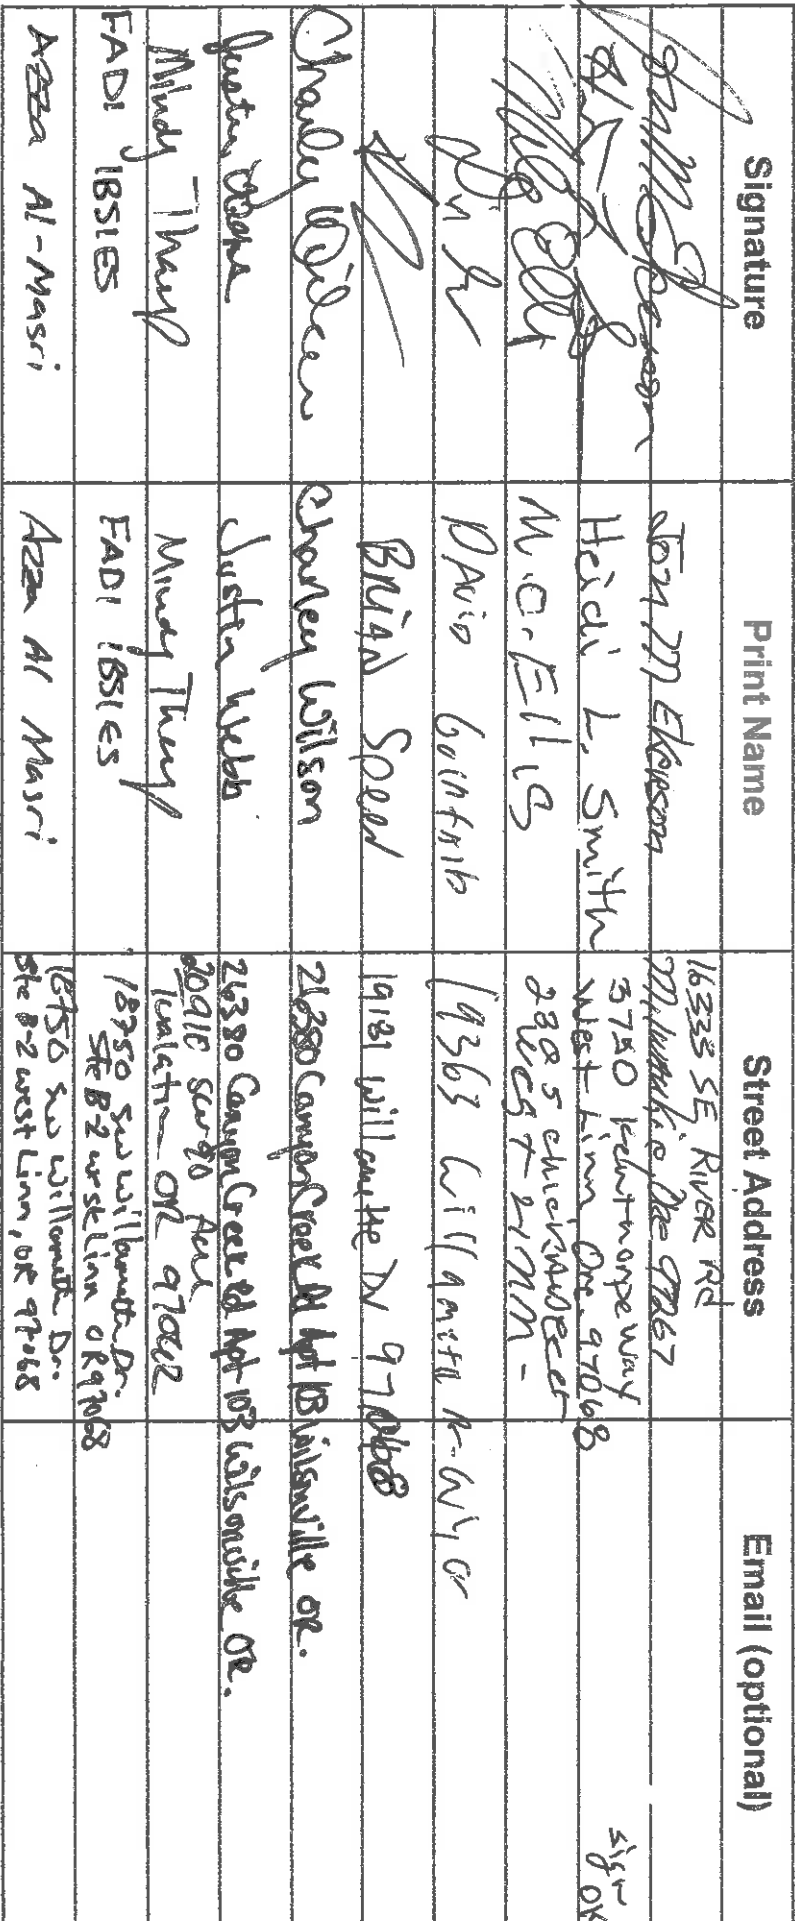 Signature Print Name Street Address Email (optional)
Jon M Ekerson 16333 SE River Rd
Milwaukie, Ore 97267
Heidi L. Smith 3750 Kenthorpe way
West Linn Ore. 97068 sign
OK
M.O. Ellis
West Linn -
David 19363 Willamette
BRIAN Speer 19181 Willamette Dr 97068
Charley Wilson Charley Wilson 26380 Canyon Creek Rd Apt 103 Wilsonville OR.
Justin Webb 26380 Canyon Creek Rd Apt 103 Wilsonville OR.
Mindy Mindy
Tualatin OR 97062
FADI IBSIES FADI IBSIES 18750 SW Willamette Dr.
Ste B-2 west Linn OR 97068
Azza Al-Masri Azza Al Masri 18750 SW Willamette Dr.
Ste B-2 West Linn, OR 97068